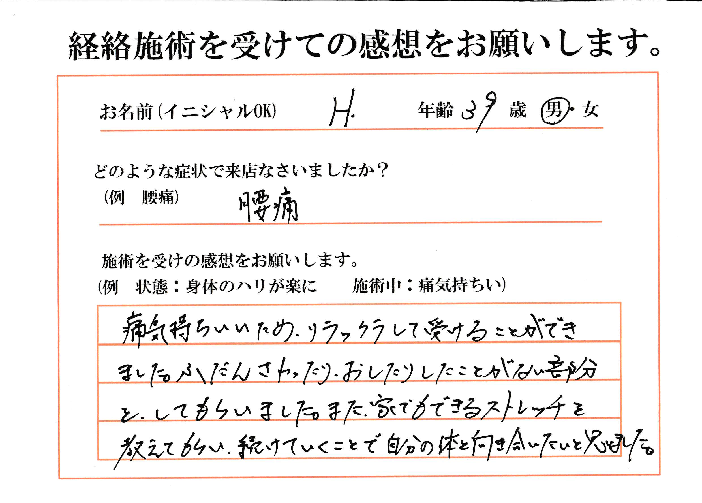 経絡施術を受けての感想をお願いします。
お名前(イニシャルOK) H. 年齢 39 歳 男・女
どのような症状で来店なさいましたか？
(例 腰痛) 腰痛
施術を受けの感想をお願いします。
(例 状態：身体のハリが楽に 施術中：痛気持ちい)
痛気持ちいいため、リラックスして受けることができ
ました。ふだんさわったり、おしたりしたことがない部分
を、してもらいました。また、家でもできるストレッチを
教えてもらい、続けていくことで自分の体と向き合いたいと思いました。